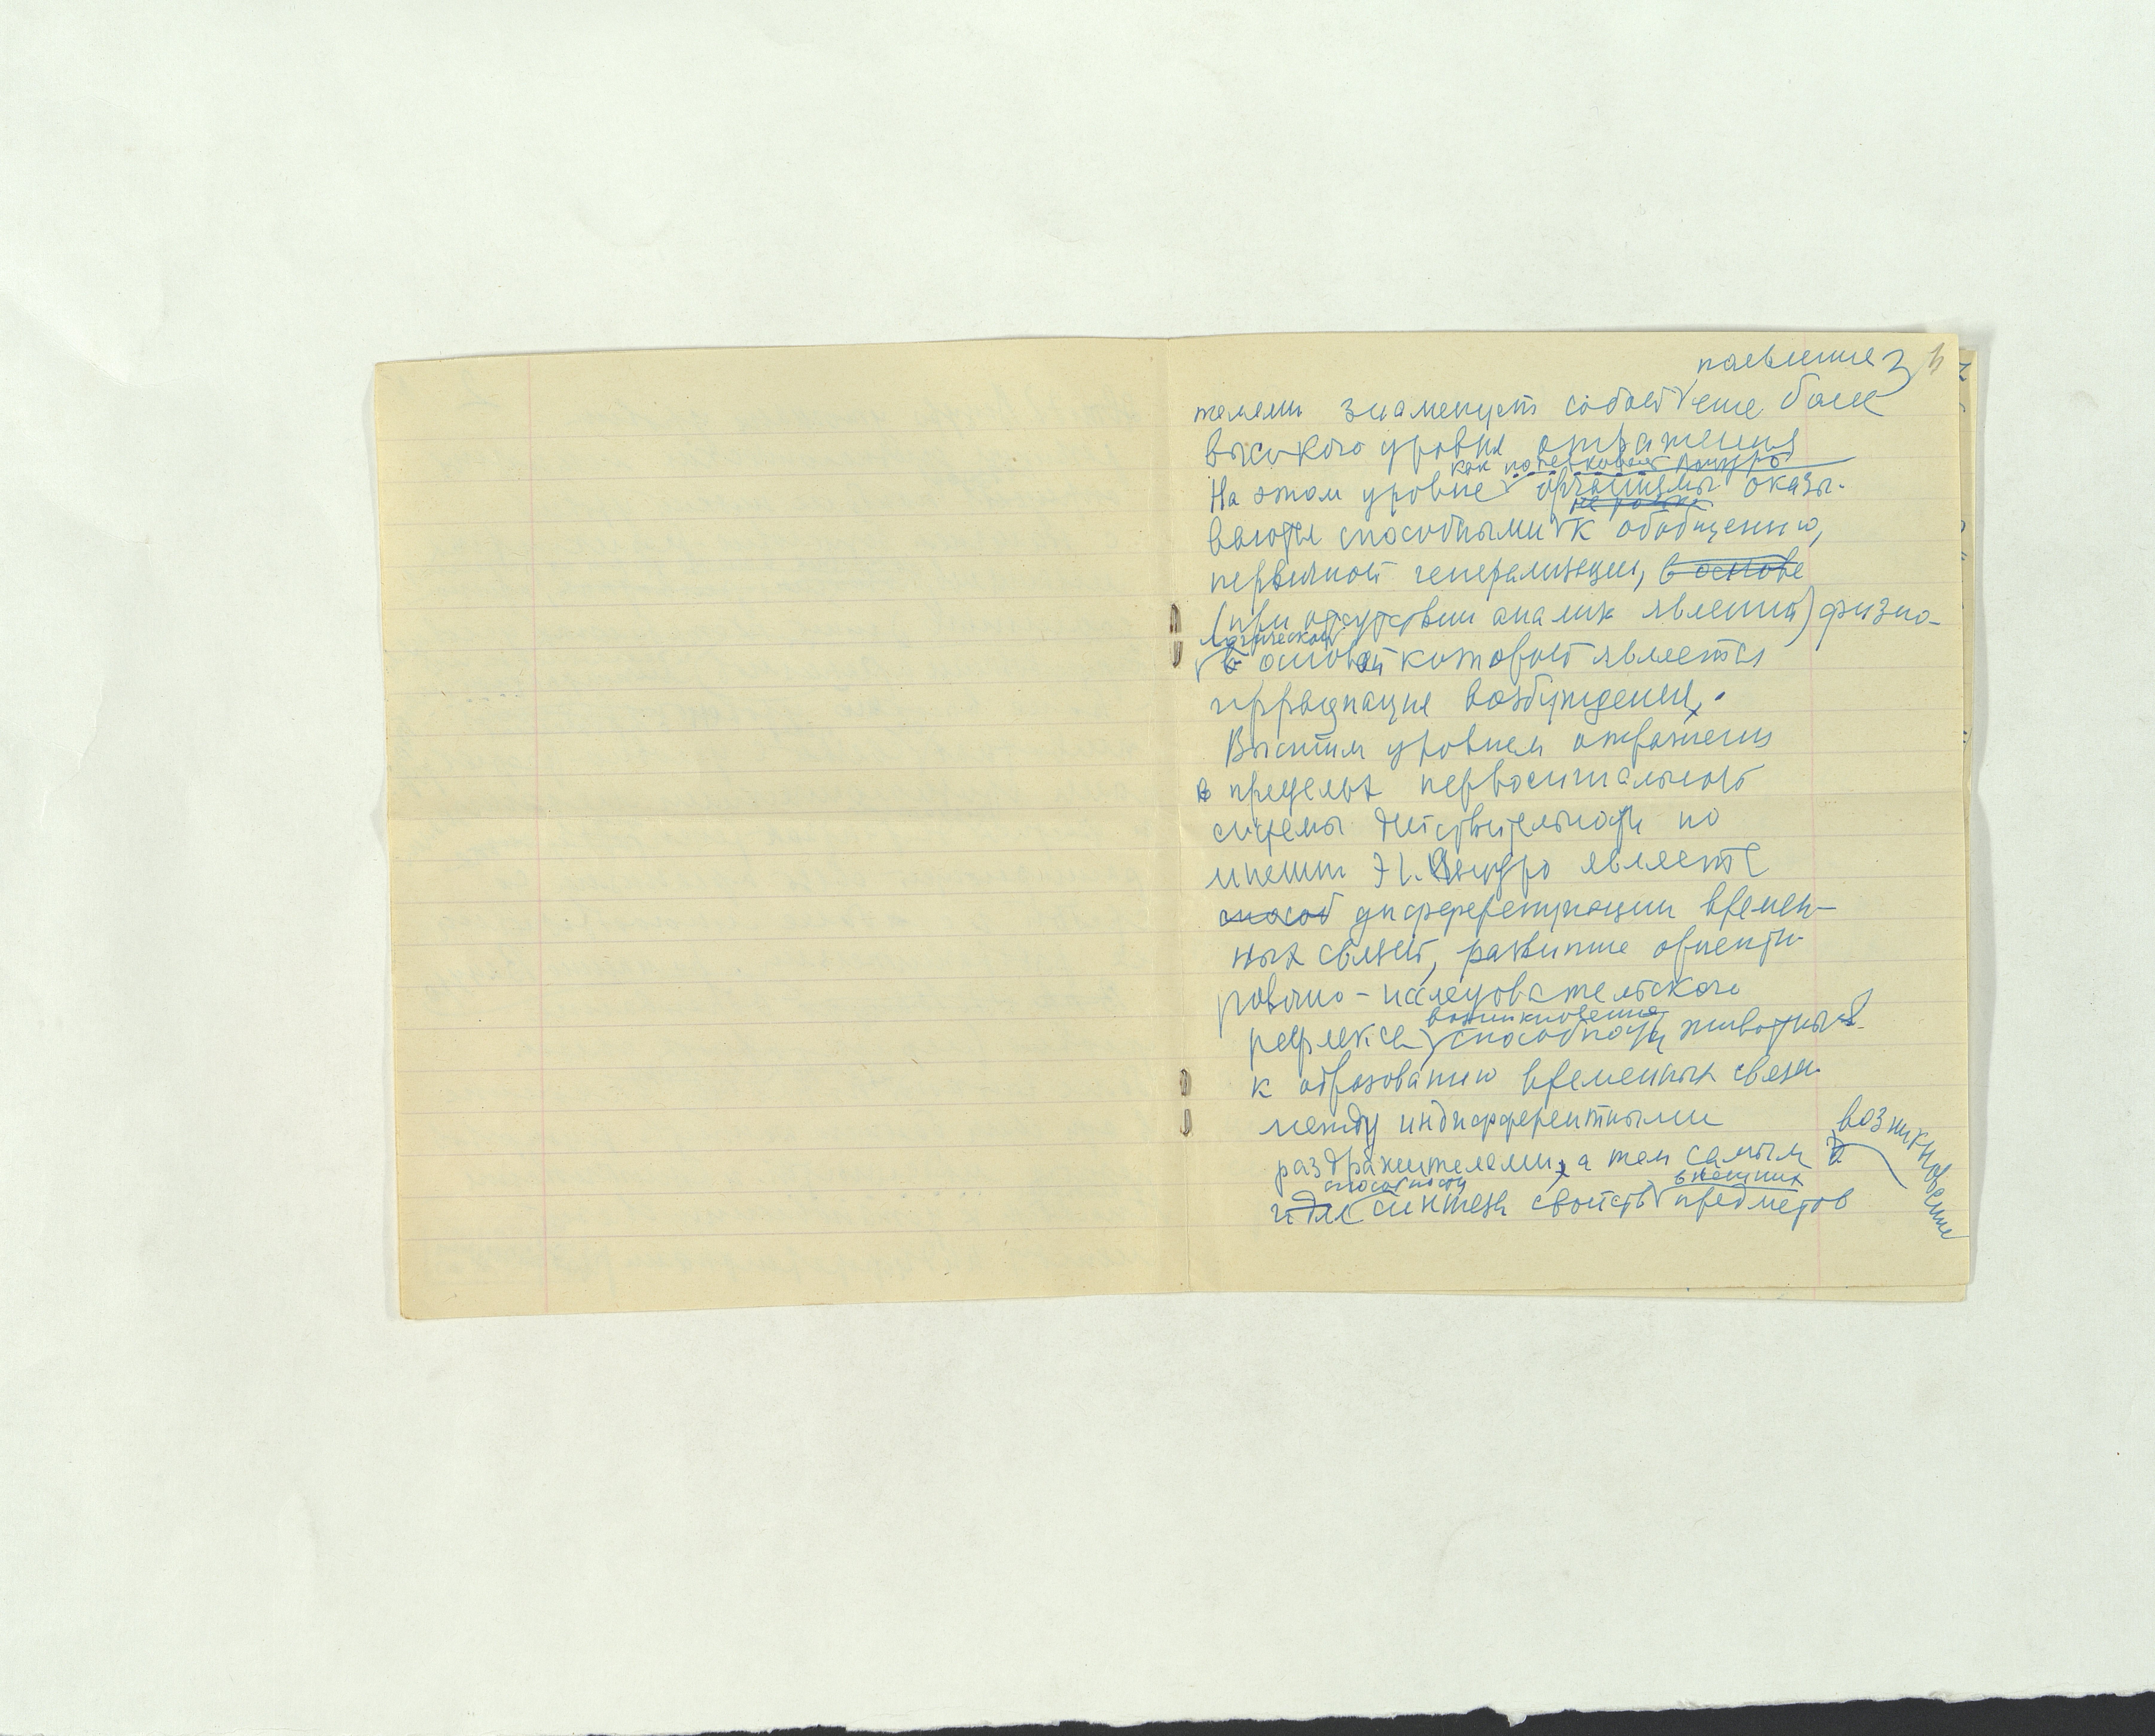 появление 3
телями знаменует собой еще более
высокого уровня отражения
как подчеркивает Асиусро
На этом уровне организмы оказы-
ваются способными к обобщению,
первичной генерализации, в основе
(при отсутствии анализа явлений) физио-
логической
основой которой является
иррадиация возбуждения.
Высшим уровнем отражения
в пределах первосигнальной
системы действительности по
мнению Э. является
способ дифференциации времен-
ных связей, развитие ориенти-
ровочно-исследовательского
рефлекса, возникновение
способности животных
к образованию временных связей
между индифферентными
раздражителями, а тем самым
возникновение
способности внешних
и для синтеза свойств предметов